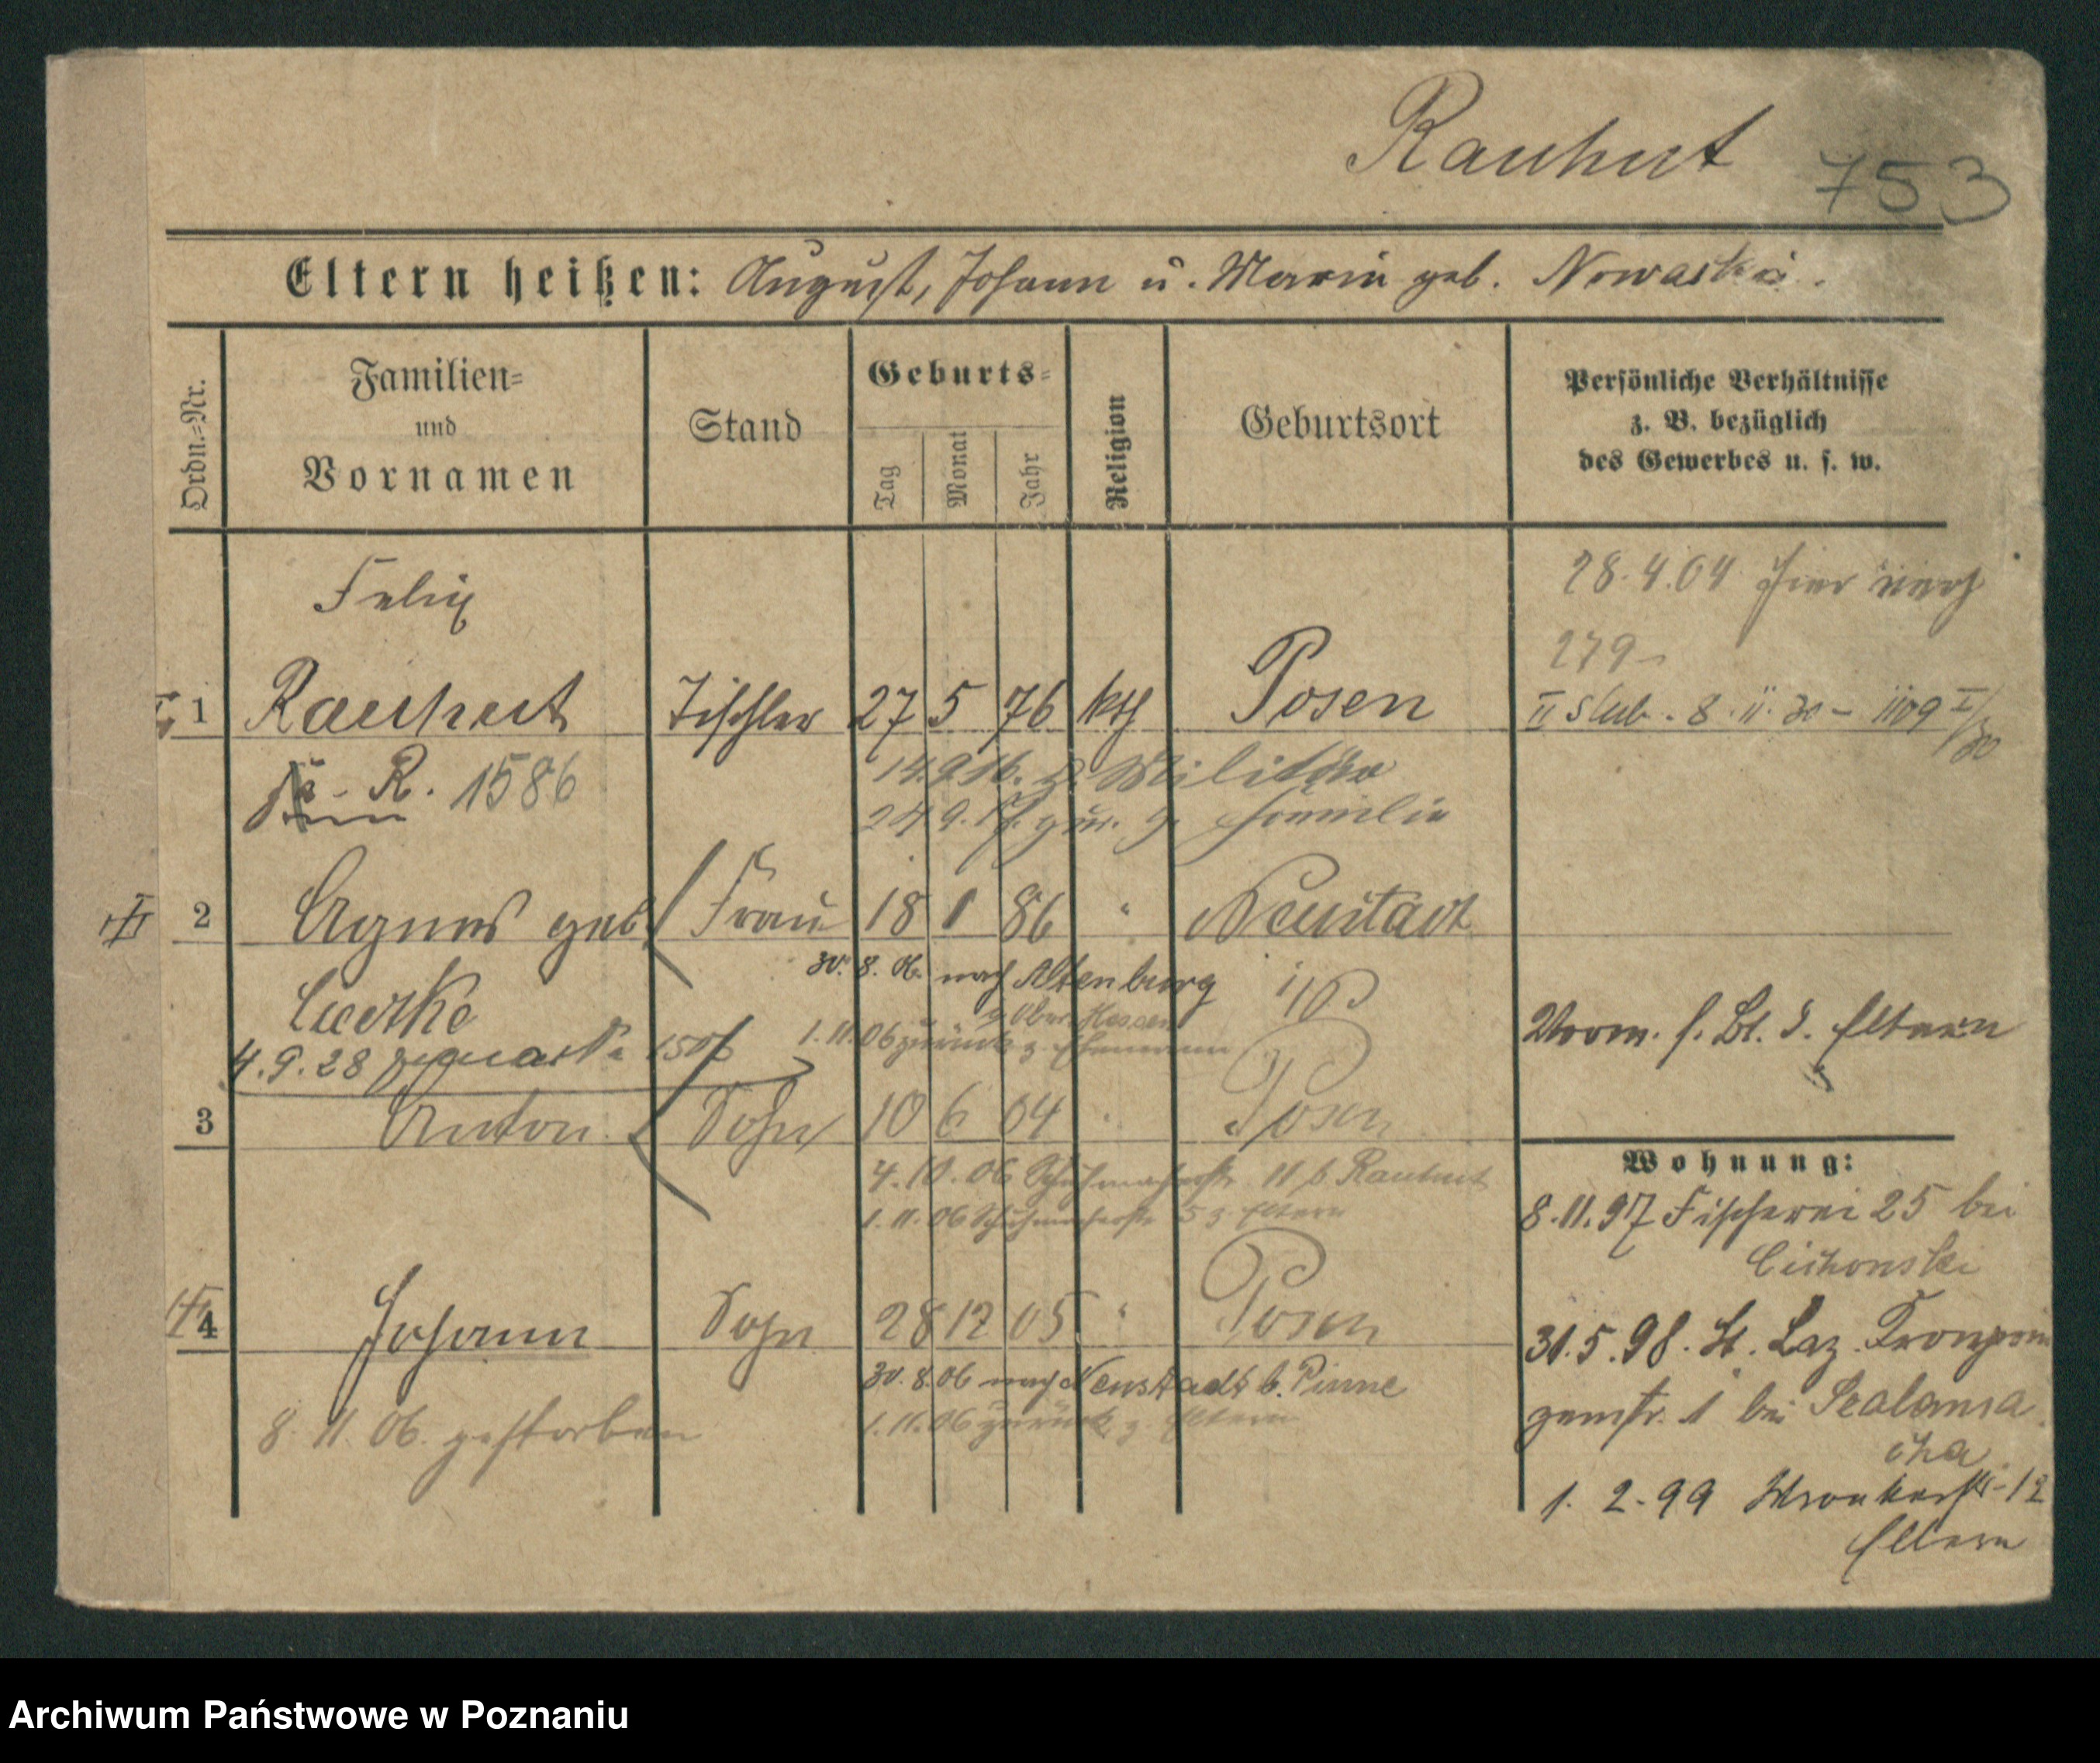 Rauhut 753
Eltern heißen: August, Johann u. Maria geb. Nowaska.
Ordn.=Nr.
Familien=
und
Vornamen
Stand
Geburts=
Tag
Monat
Jahr
Religion
Geburtsort
Persönliche Verhältnisse
z. B. bezüglich
des Gewerbes u. s. w.
Felix
28.4.04 hier
279
1 Rauhut Tischler 27 5 76 kth Posen
R. 1586
14.9.16. z. Militär
24.9. zur. z. Familie
2 Agnes geb. Frau 18 1 86 " Neustadt
30.8.06. nach Altenburg
Ober Hessen
1.11.06 zurück z. Ehemann
4.9.28
Vorm. s. Bl. d. Eltern
3 Anton Sohn 10 6 04 " Posen
4.10.06 Schuhmacherstr. 11 b Rauhut
1.11.06 Schuhmacherstr 5 z. Eltern
4 Johann Sohn 28 12 05 " Posen
30.8.06 nach Neustadt b. Pinne
8.11.06. gestorben
1.11.06 zurück z. Eltern
Wohnung:
8.11.97 Fischerei 25 bei
Cichonski
31.5.98. St. Laz.
1 bei
1.2.99 Wronkerstr. 12
Eltern
Archiwum Państwowe w Poznaniu